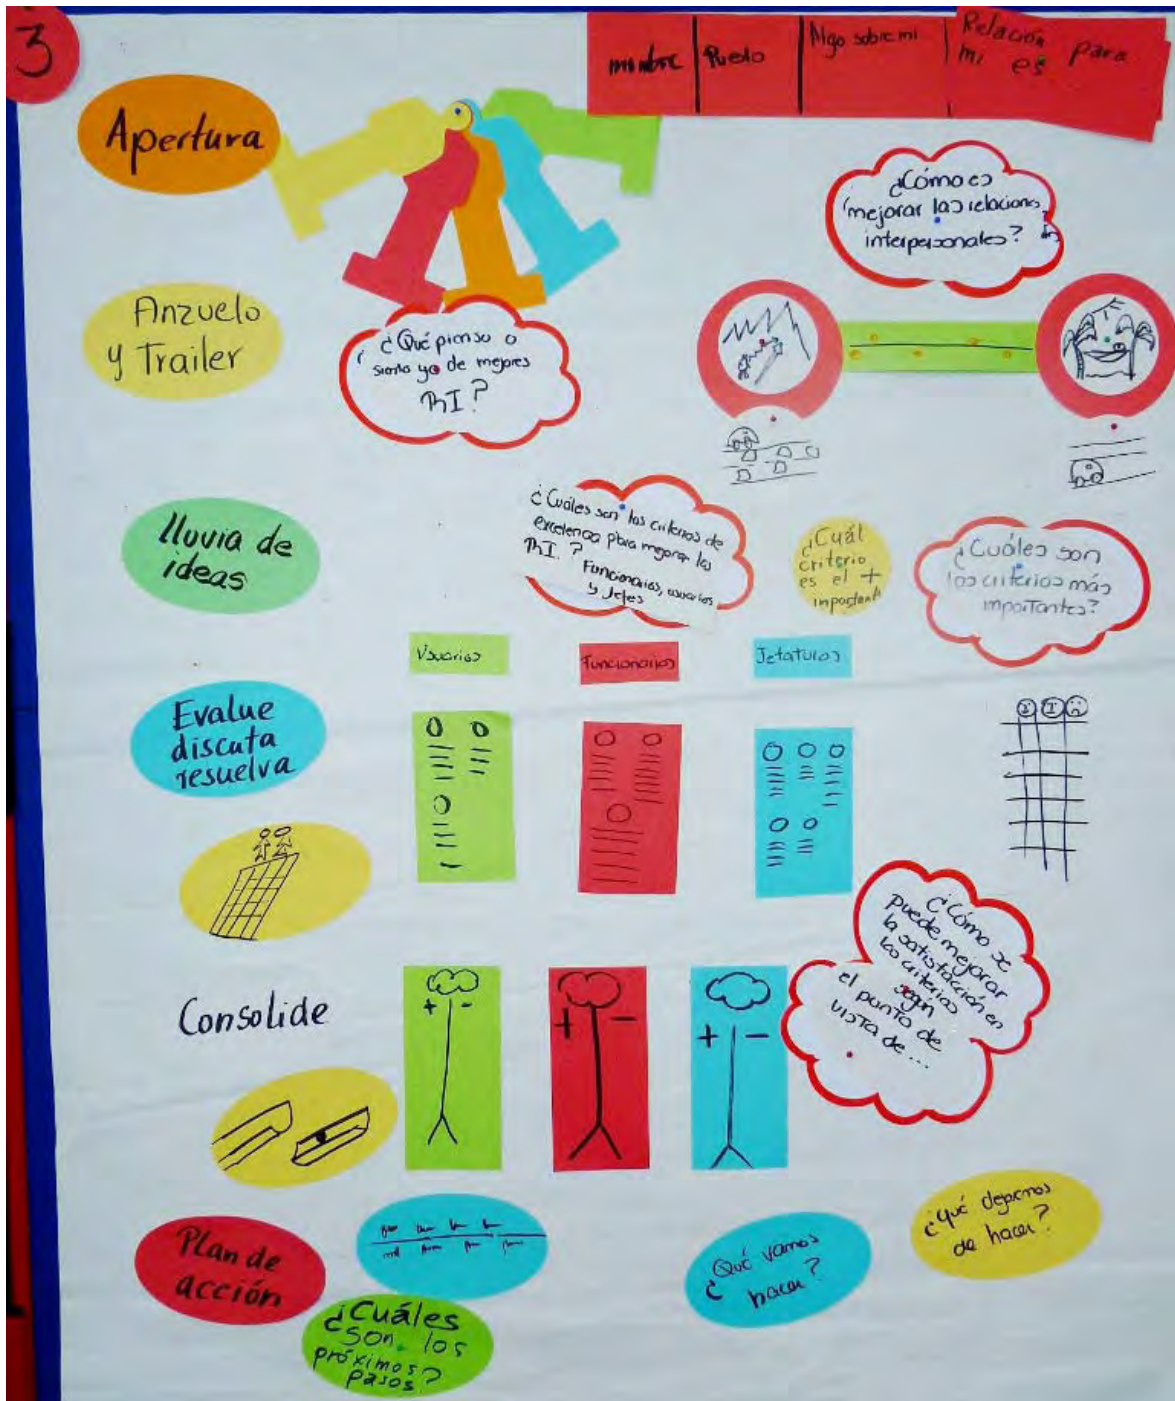 3
Apertura
mi nombre
Puedo
Algo sobre mi
Relación para
mi es
¿Cómo es
mejorar las relaciones
interpersonales?
Anzuelo
y Trailer
¿Qué pienso o
siento yo de mejores
RI?
lluvia de
ideas
¿Cuáles son los criterios de
excelencia para mejorar las
RI.?
Funcionarios, usuarios
y Jefes
¿Cuál
criterio
es el +
important
¿Cuáles son
los criterios más
importantes?
Usuarios
Funcionarios
Jefaturas
Evalue
discuta
resuelva
Consolide
+ -
+ -
+ -
¿Cómo se
puede mejorar
la satisfacción en
los criterios
según
el punto de
vista de...
Plan de
acción
¿Cuáles
son los
próximos
pasos?
¿Qué vamos
hacer?
¿Qué dejamos
de hacer?